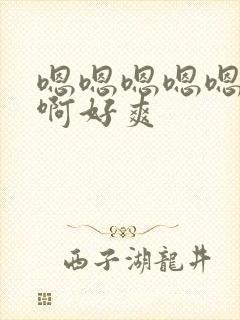 嗯嗯嗯嗯嗯
啊好爽
西子湖龍井